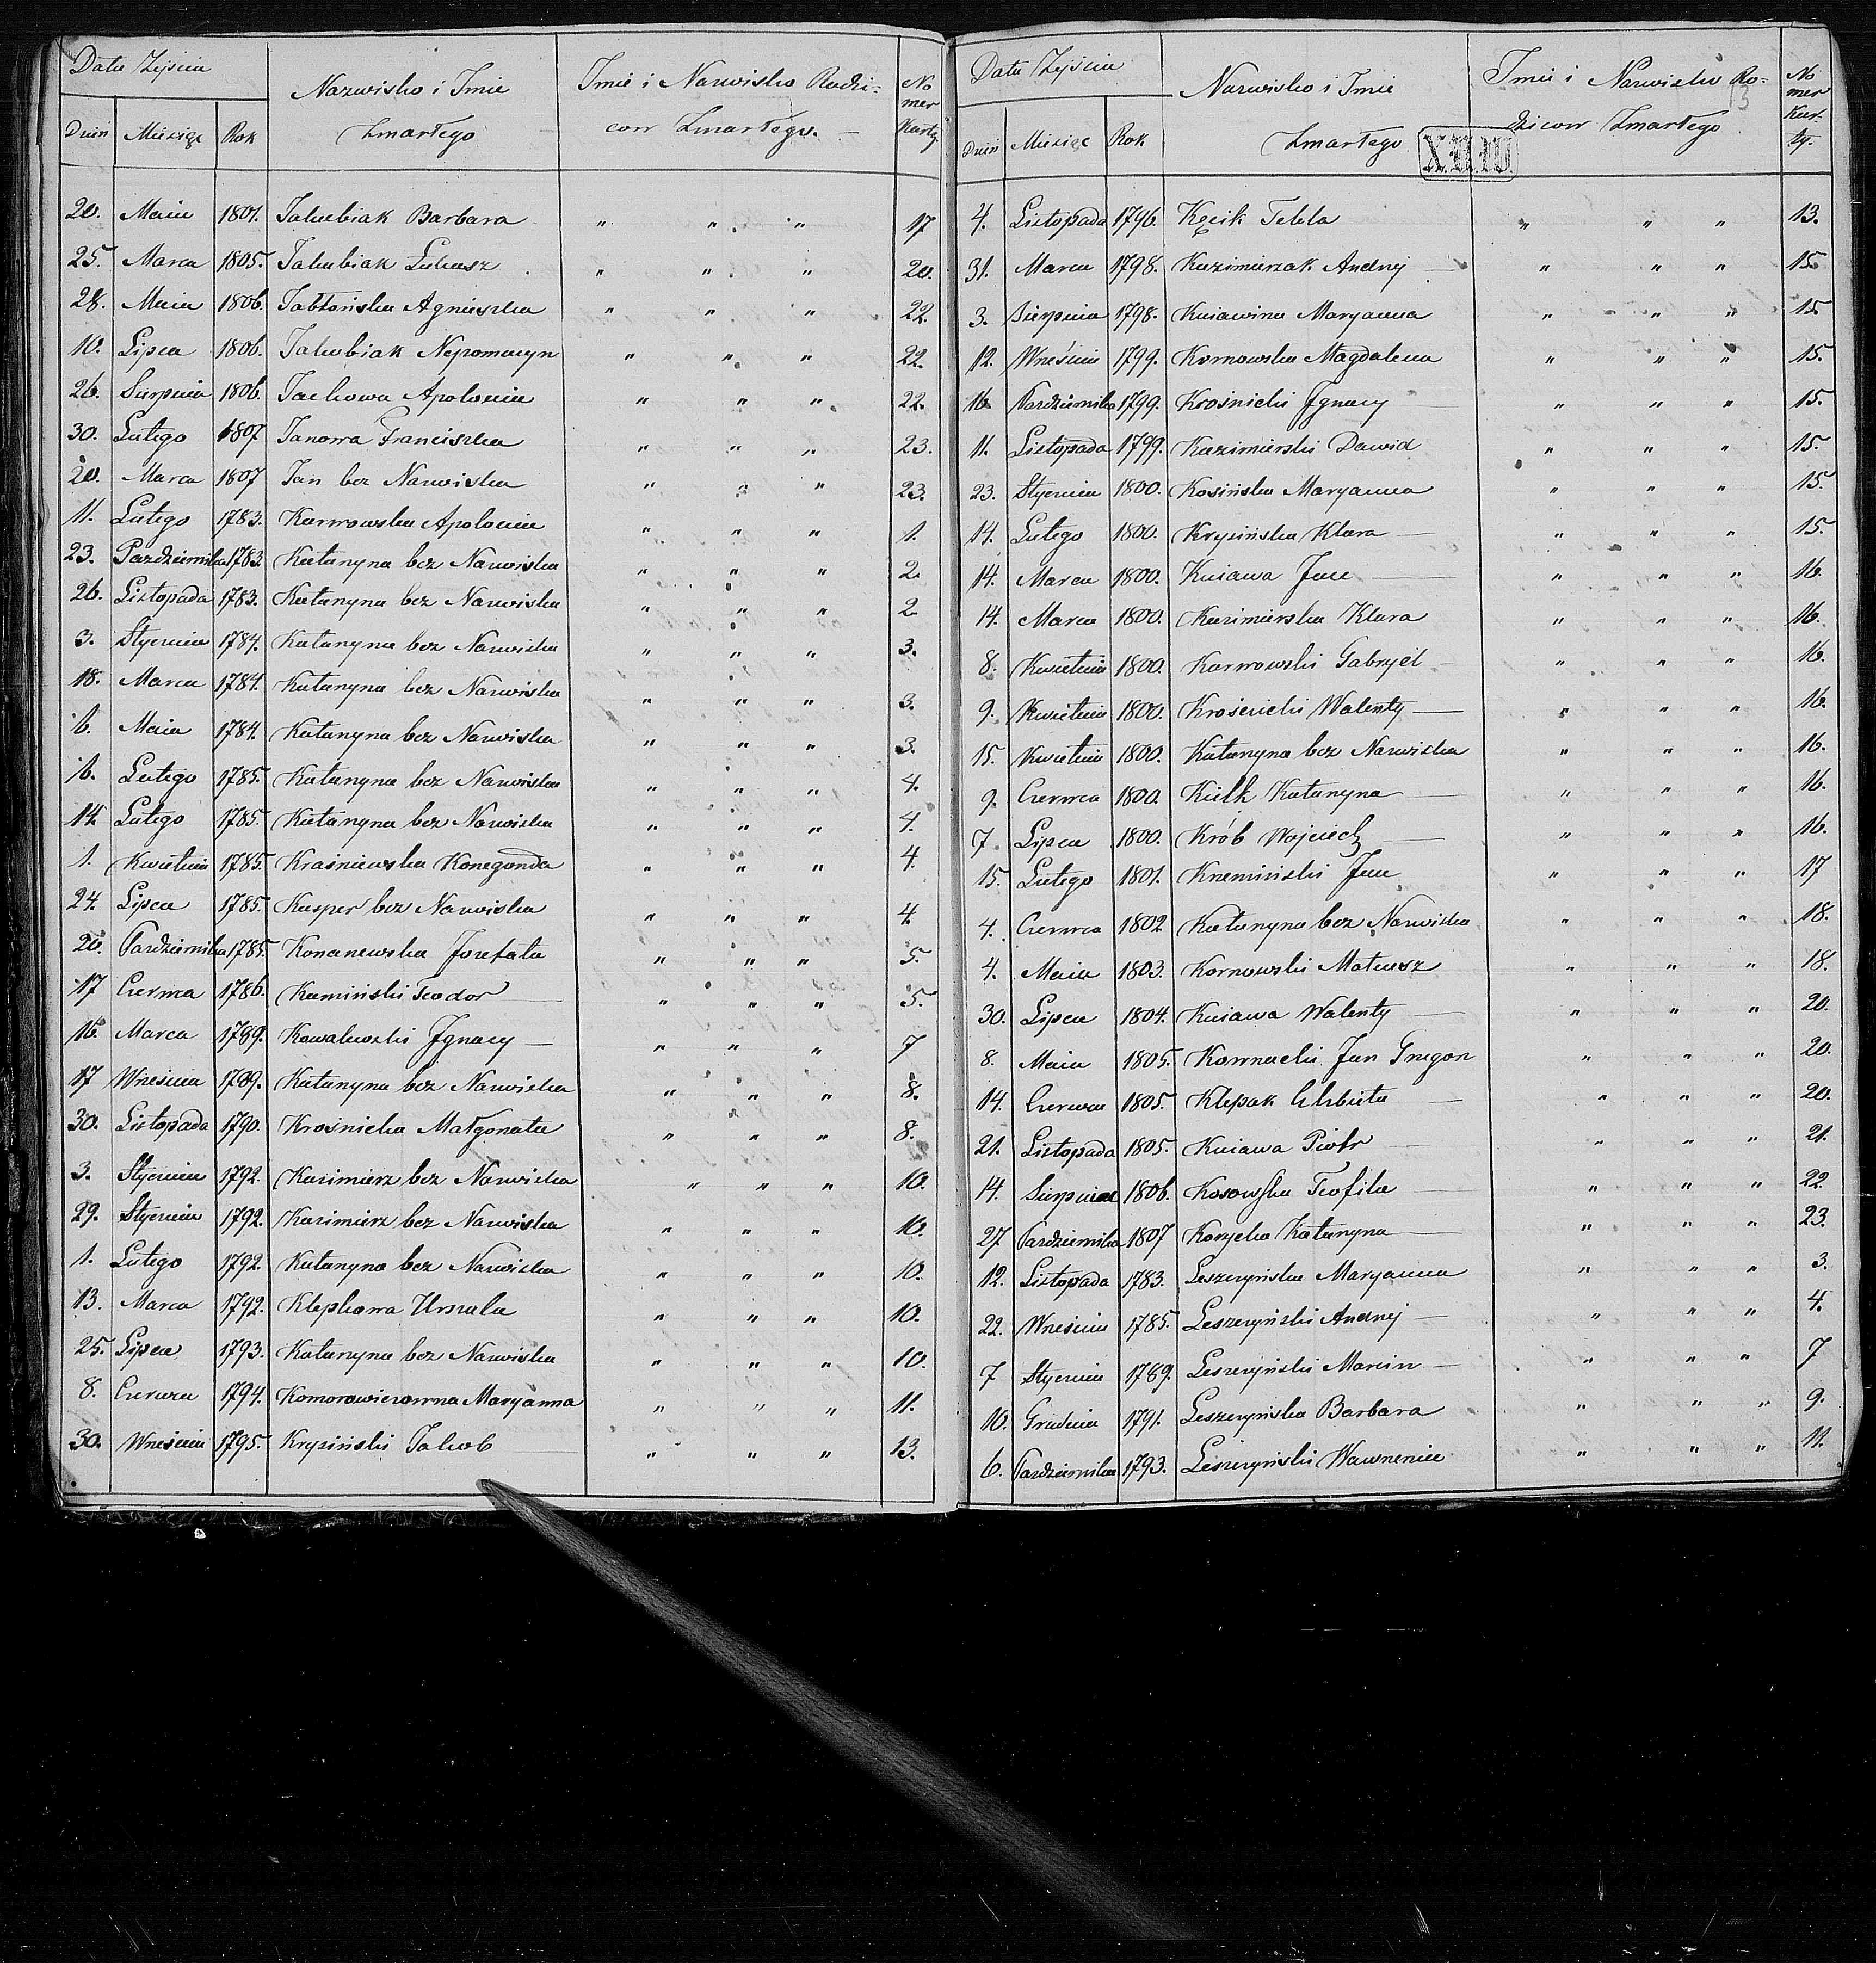 Data Zejścia
Nazwisko i Imie
Zmarłego
Imie i Nazwisko Rodzi-
ców Zmarłego. —
No
mer
Karty
Dzień Miesiąc Rok
20. Maia 1801. Jakubiak Barbara " " " 17
25. Marca 1805. Jakubiak Łukasz " " " 20.
28. Maia 1806. Jabłońska Agnieszka " " " 22.
10. Lipca 1806. Jakubiak Nepomucyn " " " 22.
26. Sierpnia 1806. Jackowa Apolonia " " " 22.
30. Lutego 1807 Janowa Franciszka " " " 23.
20. Marca 1807 Jan bez Nazwiska " " " 23.
11. Lutego 1783. Karwowska Apolonia " " " 1.
23. Pazdziernika 1783. Katarzyna bez Nazwiska " " " 2.
26. Listopada 1783. Katarzyna bez Nazwiska " " " 2
3. Stycznia 1784. Katarzyna bez Nazwiska " " " 3.
18. Marca 1784. Katarzyna bez Nazwiska " " " 3.
6. Maia 1784. Katarzyna bez Nazwiska " " " 3.
6. Lutego 1785. Katarzyna bez Nazwiska " " " 4.
14 Lutego 1785. Katarzyna bez Nazwiska " " " 4.
1. Kwietnia 1785. Kraśniewska Konegonda " " " 4.
24. Lipca 1785. Kasper bez Nazwiska " " " 4.
20. Pazdziernika 1785. Konanewska Jozefata " " " 5.
17 Czerwca 1786. Kamiński Teodor — " " " 5.
16. Marca 1789. Kowalewski Jgnacy — " " " 7
17 Września 1789. Katarzyna bez Nazwiska " " " 8.
30. Listopada 1790. Krośnicka Małgorzata " " " 8.
3. Stycznia 1792. Kazimierz bez Nazwiska " " " 10.
29. Stycznia 1792. Kazimierz bez Nazwiska " " " 10.
1. Lutego 1792. Katarzyna bez Nazwiska " " " 10.
13. Marca 1792. Klepkowa Urszula " " " 10.
25. Lipca 1793. Katarzyna bez Nazwiska " " " 10.
8. Czerwca 1794. Komorowiczowna Maryanna " " " 11.
30. Września 1795. Krysiński Jakob — " " " 13.
Data Zejścia
Nazwisko i Imie
Zmarłego
Imie i Nazwisko Ro-
dziców Zmarłego
No
mer
Kar-
ty.
13
Dzień Miesiąc Rok
4. Listopada 1796. Kęcik Tekla " " " 13.
31. Marca 1798. Kazimierzak Andrzej — " " " 15.
3. Sierpnia 1798. Kuiawina Maryanna " " " 15.
12. Września 1799. Kornowska Magdalena " " " 15.
16. Pazdziernika 1799. Krośnicki Jgnacy — " " " 15.
11. Listopada 1799. Kazimierski Dawid " " " 15.
23. Stycznia 1800. Kosińska Maryanna " " " 15.
14. Lutego 1800. Krysińska Klara — " " " 15.
14. Marca 1800. Kuiawa Jan — " " " 16.
14. Marca 1800. Kazimierska Klara " " " 16.
8. Kwietnia 1800. Karwowski Gabryel — " " " 16.
9. Kwietnia 1800. Krościcki Walenty — " " " 16.
15. Kwietnia 1800. Katarzyna bez Nazwiska " " " 16.
9. Czerwca 1800. Kulk Katarzyna — " " " 16.
7. Lipca 1800. Krób Wojciech — " " " 16.
15. Lutego 1801. Krzemiński Jan " " " 17
4. Czerwca 1802 Katarzyna bez Nazwiska " " " 18.
4. Maia 1803. Kornowski Mateusz " " " 18.
30. Lipca 1804. Kuiawa Walenty — " " " 20.
8. Maia 1805. Kownacki Jan Grzegorz " " " 20.
14. Czerwca 1805. Klepak Elzbieta — " " " 20.
21. Listopada 1805. Kuiawa Piotr — " " " 21.
14. Sierpnia 1806. Kosowska Teofila — " " " 22.
27 Pazdziernika 1807 Korycka Katarzyna — " " " 23.
12. Listopada 1783. Leszczyńska Maryanna " " " 3.
22. Września 1785. Leszczyński Andrzej — " " " 4.
7 Stycznia 1789. Leszczyński Marcin — " " " 7
10. Grudnia 1791. Leszczyńska Barbara " " " 9.
6. Pazdziernika 1793. Leszczyński Wawrzeniec " " " 11.